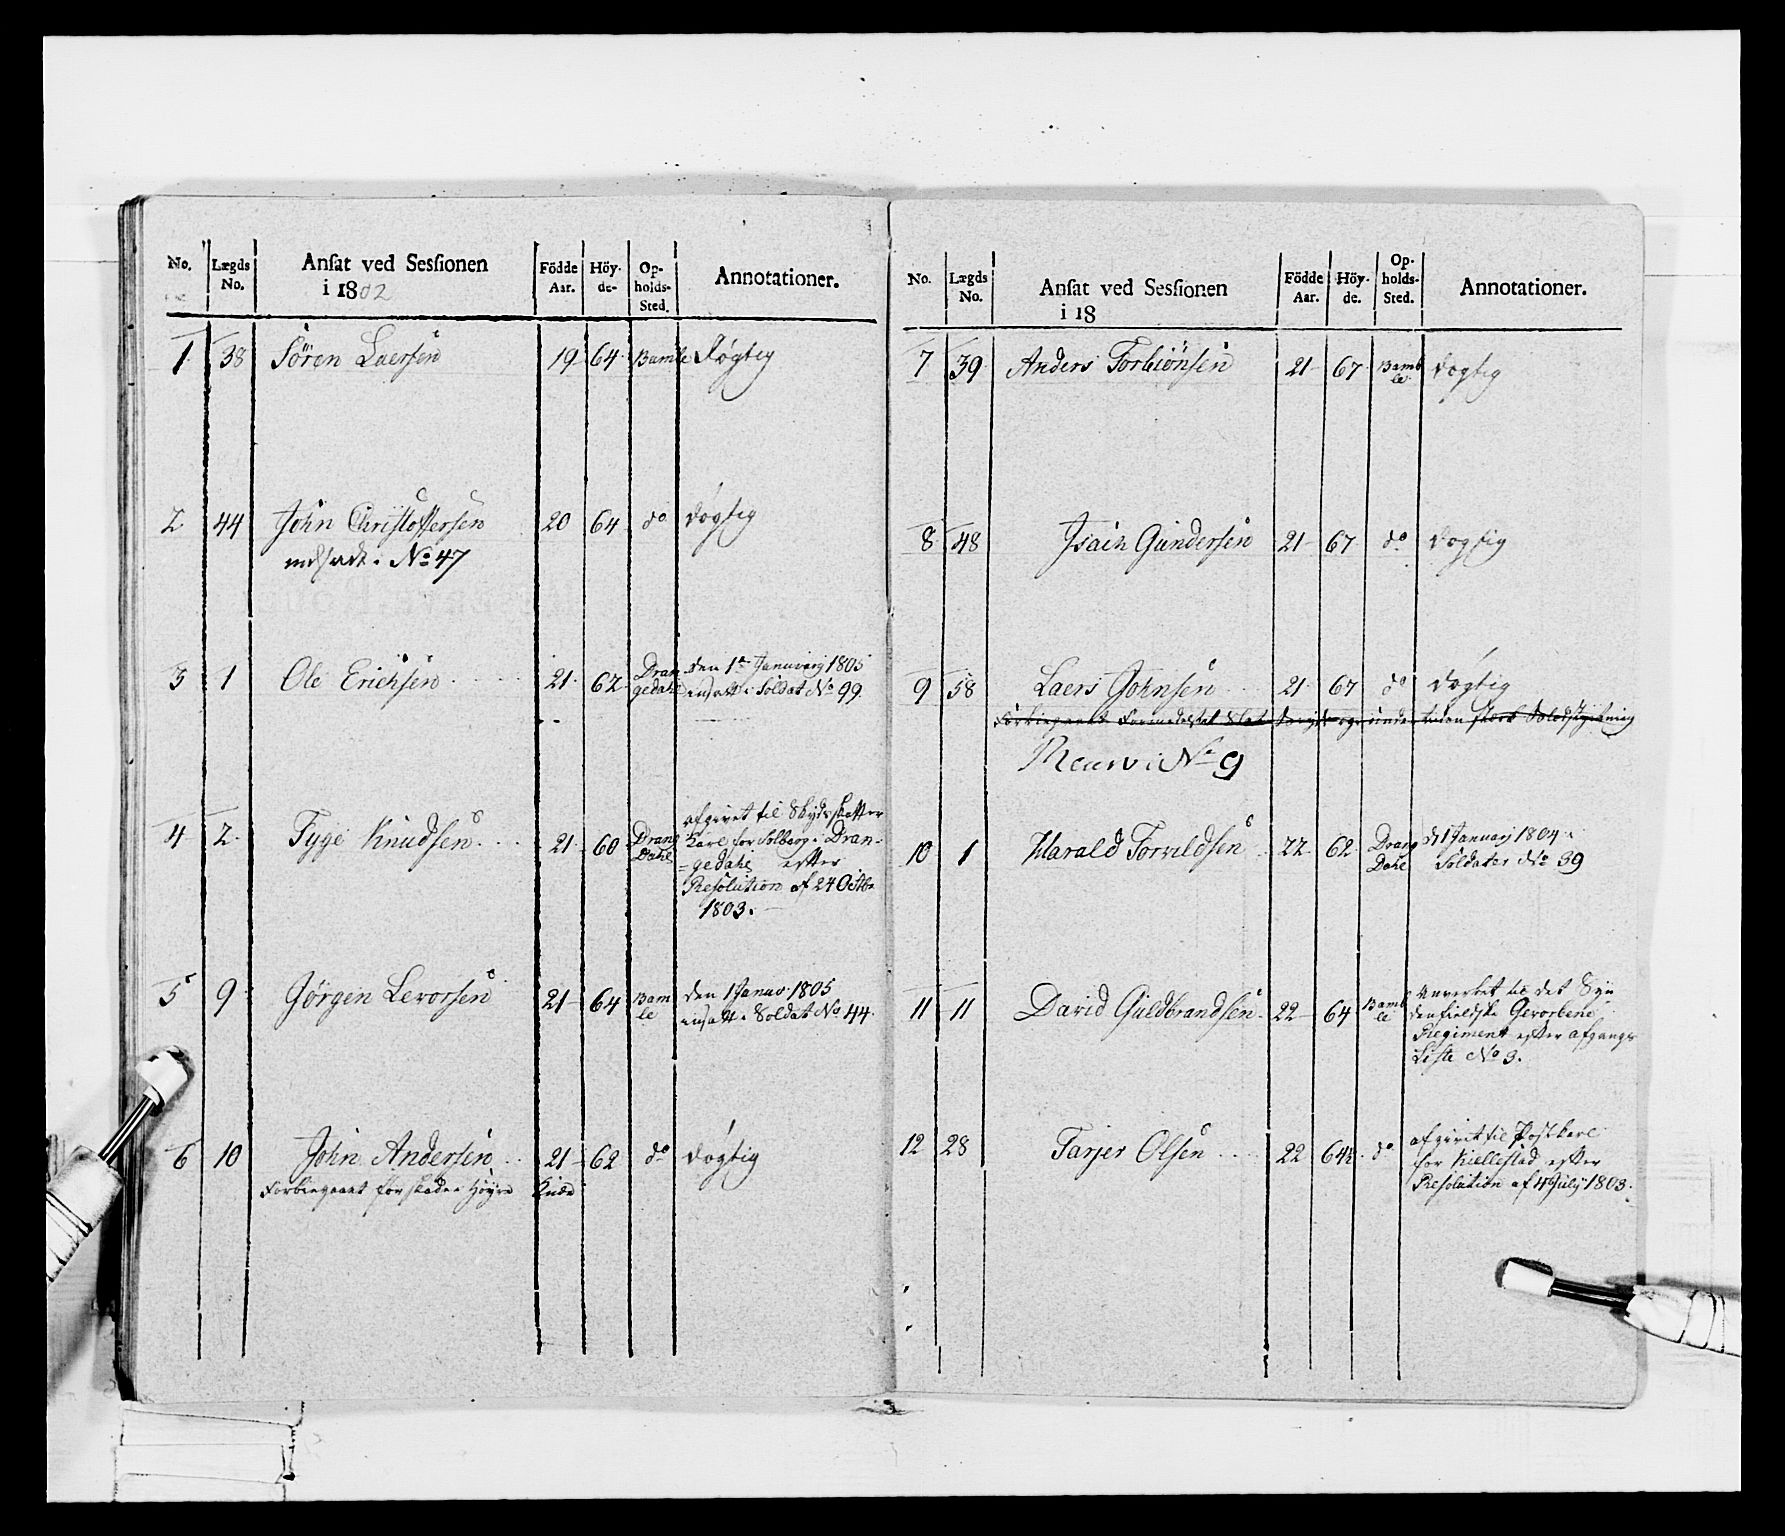 No. Lægds No. Ansat ved Sessionen i 1802 Födde Aar. Höy- de- Op- holds- Sted. Annotationer.
1 38 Sören Laersen 19 64 Bamle Døgtig
2 44 John Christoffersen 20 64 do døgtig
indsadt i No 47
3 1 Ole Erichsen 21 62 Dran gedahl den 1te Januarij 1805
insatt i Soldat No 99
4 2 Tyge Knudsen 21 60 Drang Dahl afgivet til Skydsskaffer
Karl for Solberg i Dran-
-gedahl efter
Resolution af 24 Octbr
1803.
5 9 Jørgen Levorsen 21 64 Bam le den 1 Januar 1805
insatt i Soldat No 44.
6 10 John Andersen 21 62 do døgtig
Forbiegaaet for skade i Høyre Knæe
No. Lægds No. Ansat ved Sessionen i 18 Födde Aar. Höy- de. Op- holds- Sted. Annotationer.
7 39 Anders Torbiönsen 21 67 Bamb le døgtig
8 48 Isach Gundersen 21 67 do døgtig
9 58 Laers Johnsen 21 67 do døgtig
Forbiegaaet Formedelst og under tiden stærk Blodstyrtning
No 9
10 1 Harald Torvildsen 22 62 Drang Dahl d 1 Januarj 1804 i
Soldater No 39
11 11 David Guldbrandsen 22 64 Bamb le til det Syn
denfieldske Gevorbene
Regiment efter afgangs
Liste No 3.
12 28 Tarjer Olsen 22 64½ do afgivet til Postkarl
for Kiellestad efter
Resolution af 4 July 1803.